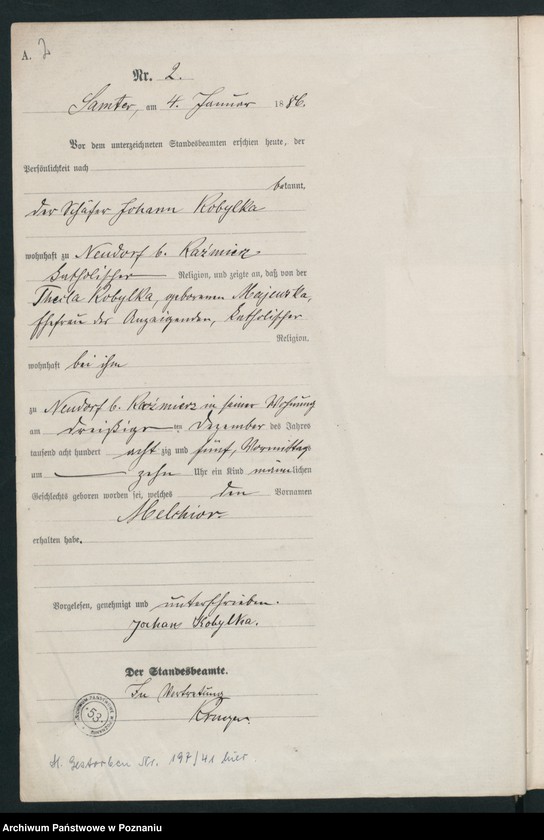 A. 2
Nr. 2.
Samter, am 4. Januar 1886.
Vor dem unterzeichneten Standesbeamten erschien heute, der
Persönlichkeit nach
bekannt,
der Schäfer Johann Kobylka
wohnhaft zu Neudorf b. Kaźmierz
katholischer Religion, und zeigte an, daß von der
Thecla Kobylka, geborenen Majewska,
Ehefrau des Anzeigenden, katholischer
Religion,
wohnhaft bei ihm
zu Neudorf b. Kaźmierz in seiner Wohnung
am dreißigten Dezember des Jahres
tausend acht hundert acht zig und fünf, Vormittags
um zehn Uhr ein Kind männlichen
Geschlechts geboren worden sei, welches den Vornamen
Melchior
erhalten habe.
Vorgelesen, genehmigt und unterschrieben.
Johann Kobylka.
Der Standesbeamte.
In Vertretung
53
Gestorben Nr. 197/41 hier.
Archiwum Państwowe w Poznaniu